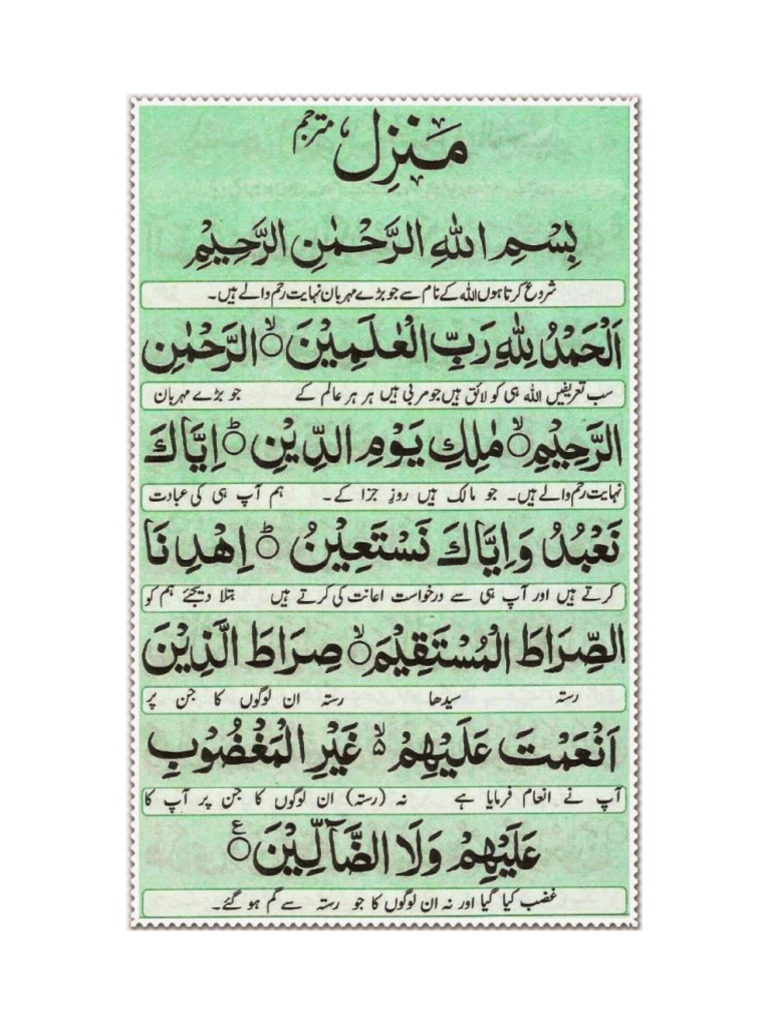 منزل مترجم
بِسْمِ اللهِ الرَّحْمٰنِ الرَّحِيْمِ
شروع کرتا ہوں اللہ کے نام سے جو بڑے مہربان نہایت رحم والے ہیں۔
اَلْحَمْدُ لِلّٰهِ رَبِّ الْعٰلَمِيْنَ ۙ الرَّحْمٰنِ
سب تعریفیں اللہ ہی کو لائق ہیں جو مربی ہیں ہر ہر عالم کے جو بڑے مہربان
الرَّحِيْمِ ۙ مٰلِكِ يَوْمِ الدِّيْنِ ؕ اِيَّاكَ
نہایت رحم والے ہیں۔ جو مالک ہیں روز جزا کے۔ ہم آپ ہی کی عبادت
نَعْبُدُ وَاِيَّاكَ نَسْتَعِيْنُ ؕ اِهْدِنَا
کرتے ہیں اور آپ ہی سے درخواست اعانت کی کرتے ہیں بتلا دیجئے ہم کو
الصِّرَاطَ الْمُسْتَقِيْمَ ۙ صِرَاطَ الَّذِيْنَ
رستہ سیدھا رستہ ان لوگوں کا جن پر
اَنْعَمْتَ عَلَيْهِمْ ۙ۵ غَيْرِ الْمَغْضُوْبِ
آپ نے انعام فرمایا ہے نہ (رستہ) ان لوگوں کا جن پر آپ کا
عَلَيْهِمْ وَلَا الضَّآلِّيْنَ ع
غضب کیا گیا اور نہ ان لوگوں کا جو رستہ سے گم ہو گئے۔